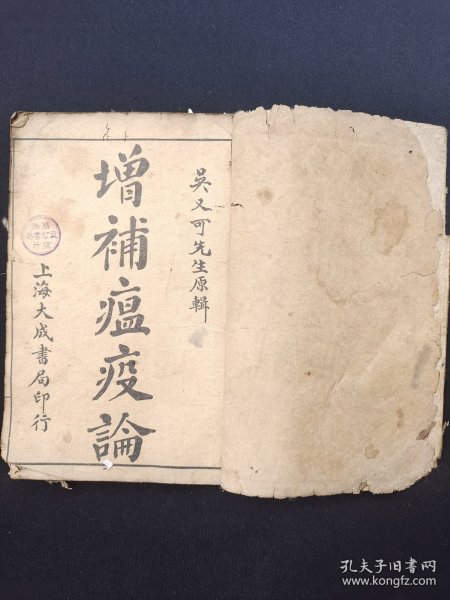 吳又可先生原輯
增補瘟疫論
上海大成書局印行
孔夫子旧书网
www.kongfz.com